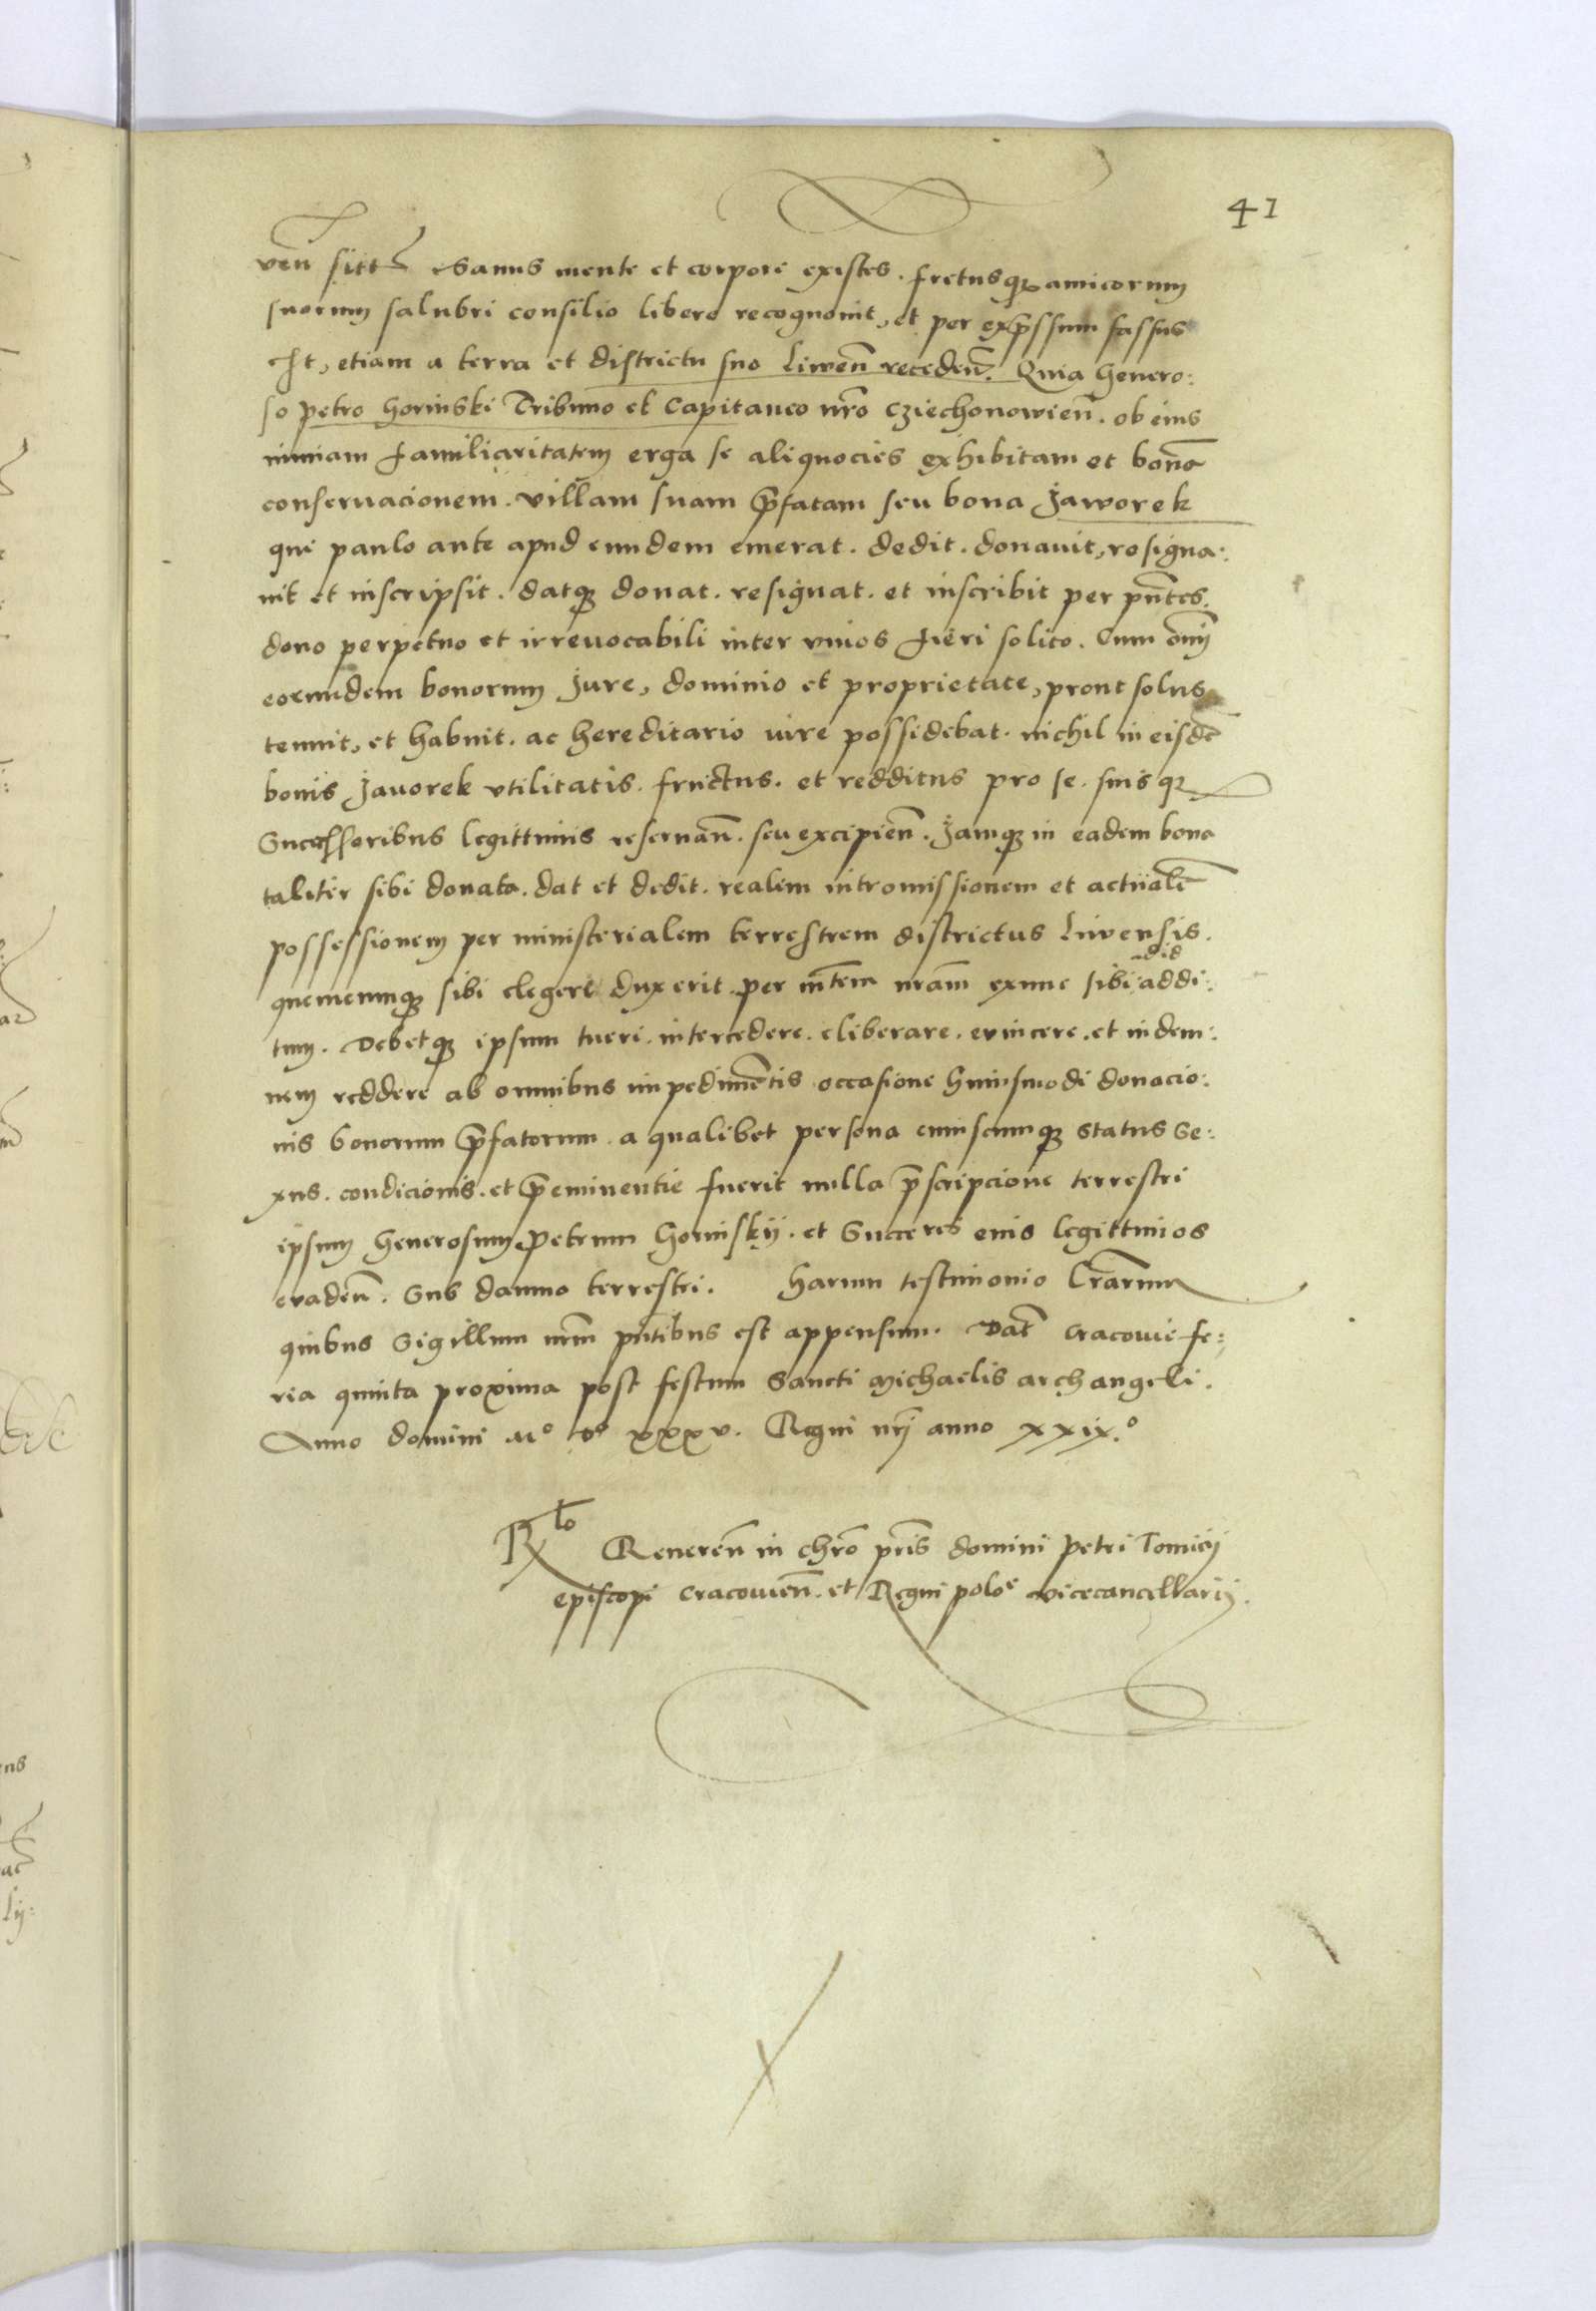 41
ven̄ sitt Sanus mente et corpore existēs. fretusq̄ amicorum
suorum salubri consilio libere recognouit, et per exp̄ssum fassus
est, etiam a terra et districtu suo Liwen̄ receden̄. Quia Genero:
so Petro Gorinski Tribuno et Capitaneo nr̄o Cziechonowien̄. ob eius
nimiam familiaritatem erga se aliquocies exhibitam et bonā
conseruacionem. villam suam p̄fatam seu bona Jaworek
que paulo ante apud eundem emerat. dedit. donauit, resigna:
uit et inscripsit. datq̄ donat. resignat. et inscribit per pn̄tes.
dono perpetuo et irreuocabili inter viuos fieri solito. Cum om̄j
eorundem bonorum Jure, dominio et proprietate, prout solus
tenuit, et habuit. ac hereditario iure possidebat. nichil in eisdē
bonis Jauorek vtilitatis. fructus. et redditus pro se. suisq̄
Successoribus legittimis reseruan̄. seu excipien̄. Jamq̄ in eadem bona
taliter sibi donata. dat et dedit. realem intromissionem et actualē
possessionem per ministerialem terrestrem districtus Liwensis.
quemcumq̄ sibi elegere duxerit per m̄tem nram̄ exnunc sibi ad id addi:
tum. Debetq̄ ipsum tueri. intercedere. eliberare. euincere. et indem:
nem reddere ab omnibus impedimētis occasione huiusmodi donacio:
nis bonorum p̄fatorum. a qualibet persona cuiuscumq̄ status Se:
xus. condicionis. et p̄eminentie fuerit nulla p̄scripcione terrestri
ipsum Generosum Petrum Gorinskij. et Succeres eius legittimos
euaden̄. Sub damno terrestri. Harum testimonio Lr̄arum
quibus Sigillum nr̄m pn̄tibus est appensum. Dat̄ Cracouie fe:
ria quinta proxima post festum Sancti Michaelis archangeli.
Anno domini Mᵒ dᵒ xxxv. Regni nr̄j anno xxix.ᵒ
Rlō Reueren̄ in chrō pr̄is domini Petri Tomicij
episcopi Cracouien̄. et Regni poloᵉ vicecancellarij.